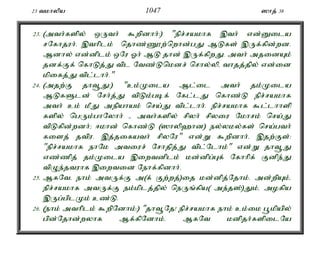 23 வமாலிய 1047 ஸாத் 38
23. (அவர்களில் ஒருவர் கூறினார்:) "நிச்சயமாக இவர் என்னுடைய
சகோதரர். இவரிடம் தொண்ணூற்றொன்பது ஆடுகள் இருக்கின்றன.
ஆனால் என்னிடம் ஒரே ஓர் ஆடு தான் இருக்கிறது. அவர் அதனையும்
தனக்குக் கொடுத்து விட வேண்டுமெனச் சொல்லி, வாதத்தில் என்னை
மிகைத்து விட்டார்."
24. (அதற்கு தாவூது:) "உம்முடைய ஆட்டை அவர் தம்முடைய
ஆடுகளுடன் சேர்த்து விடும்படிக் கேட்டது கொண்டு நிச்சயமாக
அவர் உம் மீது அநியாயம் செய்து விட்டார். நிச்சயமாக கூட்டாளி
களில் பெரும்பாலோர் - அவர்களில் சிலர் சிலரை மோசம் செய்து
விடுகின்றனர்; ஈமான் கொண்டு (ஸாலிஹான) நல்லமல்கள் செய்பவர்
களைத் தவிர. இத்தகையவர் சிலரே" என்று கூறினார். இதற்குள்:
"நிச்சயமாக நாமே அவரைச் சோதித்து விட்டோம்" என்று தாவூது
எண்ணித் தம்முடைய இறைவனிடம் மன்னிப்புக் கோரிக் குனிந்து
விழுந்தவராக இறைவனை நோக்கினார்.
25. ஆகவே, நாம் அவருக்கு அ(க் குற்றத்)தை மன்னித்தோம். அன்றியும்,
நிச்சயமாக அவருக்கு நம்மிடத்தில் நெருங்கிய( அந்தஸ்)தும், அழகிய
இருப்பிடமும் உண்டு.
26. (நாம் அவரிடம் கூறினோம்:) "தாவூதே! நிச்சயமாக நாம் உம்மை பூமியில்
பின்தோன்றலாக ஆக்கினோம். ஆகவே மனிதர்களிடையே